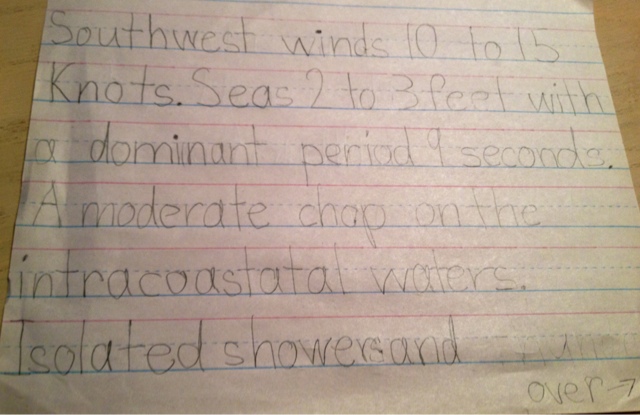 Southwest winds 10 to 15
Knots. Seas 2 to 3 feet with
a dominant period 9 seconds.
A moderate chop on the
intracoastatal waters.
Isolated showers and
over →